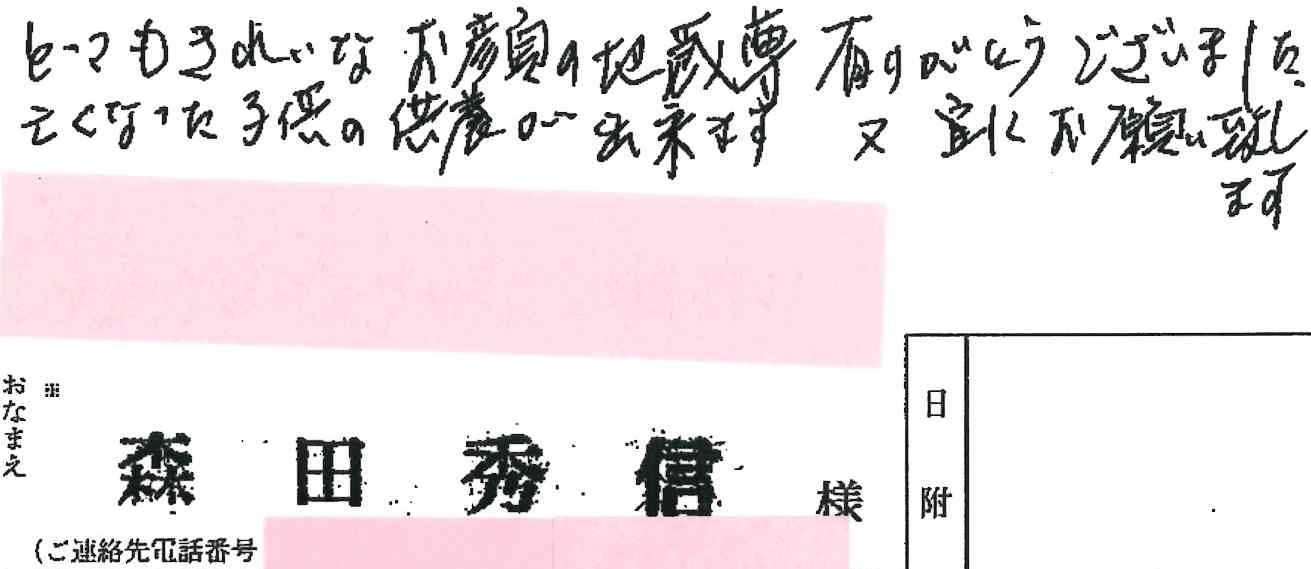 とってもきれいなお顔の地蔵尊 有りがとうございました。
亡くなった子供の供養が出来ます 又 宜しくお願い致し
ます
おなまえ
※
森田秀信 様
(ご連絡先電話番号
日附